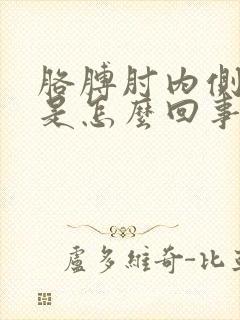 胳膊肘内側
是怎麼回事
盧多維奇-比亞